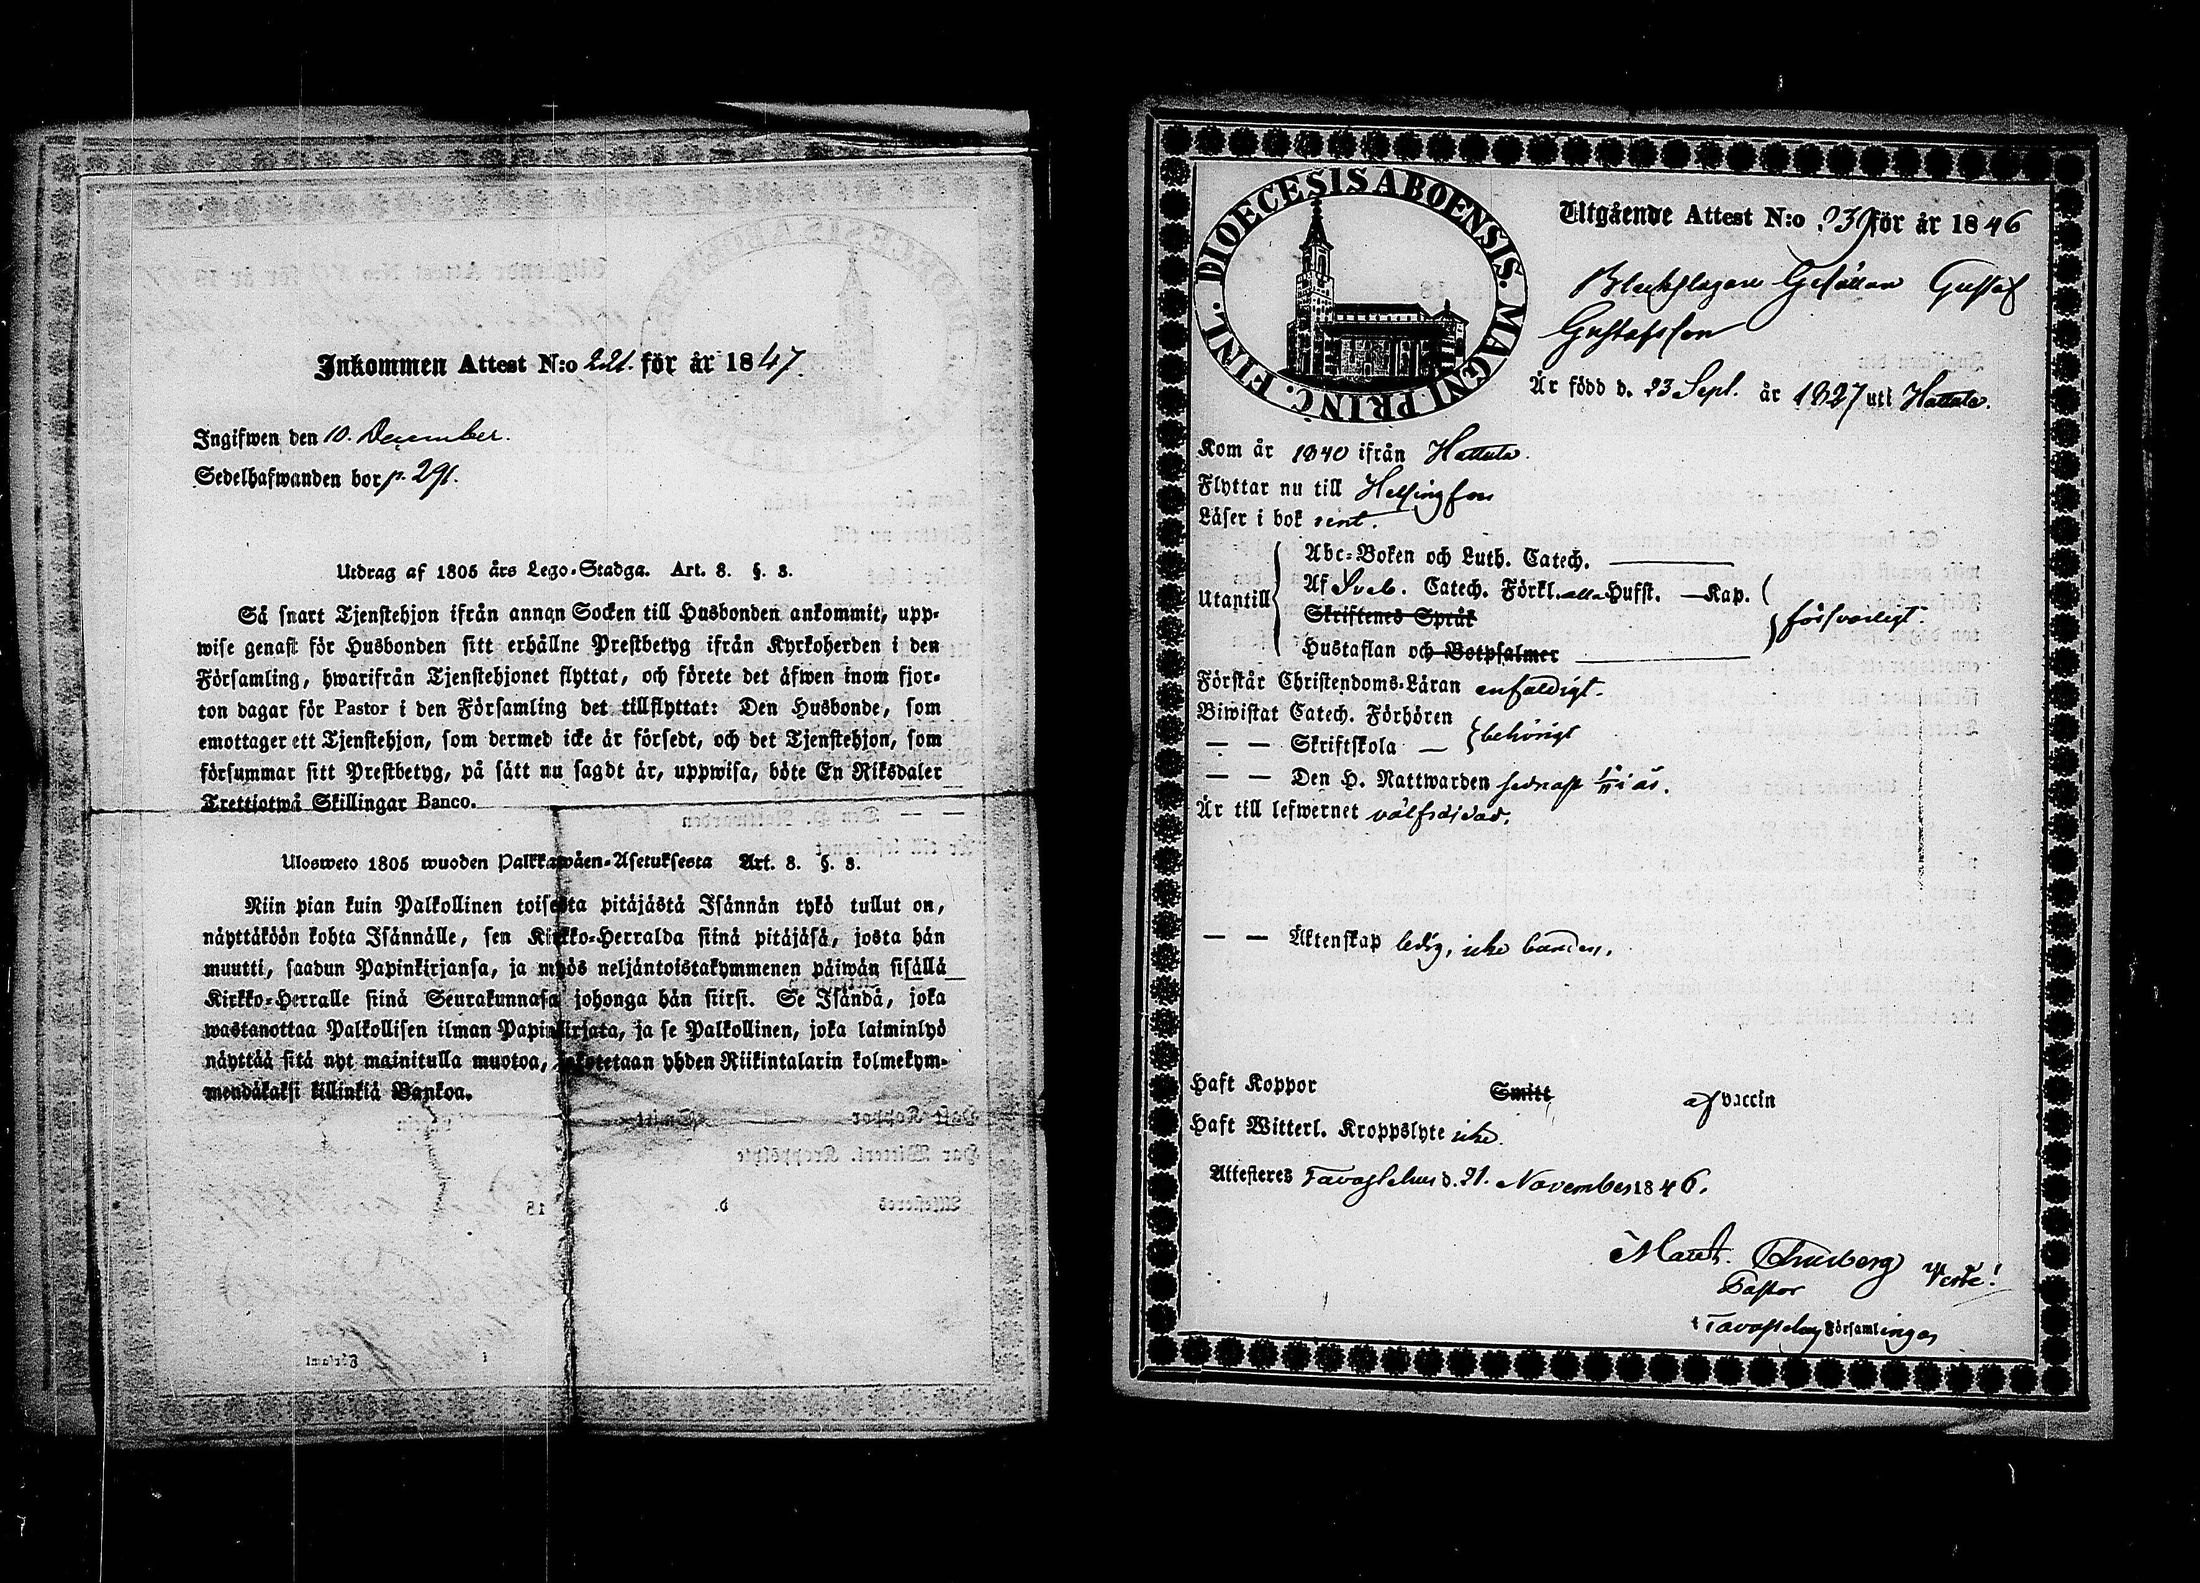 Inkommen Attest N:o 221. för år 1847.
Ingifwen den 10. December.
Sedelhafwanden bor p. 291.
Utdrag af 1805 års Lego-Stadga. Art. 8. §. 3.
Så snart Tjenstehjon ifrån annan Socken till Husbonden ankommit, upp-
wise genast för Husbonden sitt erhållne Prestbetyg ifrån Kyrkoherden i den
Församling, hwarifrån Tjenstehjonet flyttat, och förete det äfwen inom fjor-
ton dagar för Pastor i den Församling det tillflyttat: Den Husbonde, som
emottager ett Tjenstehjon, som dermed icke är försedt, och det Tjenstehjon, som
försummar sitt Prestbetyg, på sätt nu sagdt är, uppwisa, böte En Riksdaler
Trettiotwå Skillingar Banco.
Ulosweto 1805 wuoden Palkkawäen-Asetuksesta Art. 8. §. 3.
Niin pian kuin Palkollinen toisesta pitäjästä Isännän tykö tullut on,
näyttäköön kohta Isännälle, sen Kirkko-Herralda siinä pitäjäsä, josta hän
muutti, saadun Papinkirjansa, ja myös neljäntoistakymmenen päiwän sisällä
Kirkko-Herralle siinä Seurakunnasa johonga hän siirsi. Se Isändä, joka
wastanottaa Palkollisen ilman Papinkirjata, ja se Palkollinen, joka laiminlyö
näyttää sitä nyt mainitulla muotoa, sakotetaan yhden Riikintalarin kolmekym-
mendäkaksi killinkiä Bankoa.
DIOECESIS ABOENSIS. MAGNI PRINC. FINL.
Utgående Attest N:o 239 för år 1846
Bleckslagare Gesällen Gustaf
Gustafsson
Är född d. 23 Sept. år 1827 uti Hattula.
Kom år 1840 ifrån Hattula.
Flyttar nu till Helsingfors
Läser i bok rent.
Utantill
Abc-Boken och Luth. Catech.
Af Sveb. Catech. Förkl. alla Hufst. — Kap.
Skriftenes Språk
försvarligt.
Hustaflan och Botpsalmer
Förstår Christendoms-Läran enfaldigt.
Biwistat Catech. Förhören
— — Skriftskola — behörigt
— — Den H. Nattwarden sednast 1/11 i år.
Är till lefwernet välfrejdad.
— — Äktenskap ledig, icke bunden.
Haft Koppor Smitt af vaccin
Haft Witterl. Kroppslyte icke.
Attesteres Tavastehus d. 21. November 1846.
Matth. Pastor Verte!
i Tavastehus Församlingar